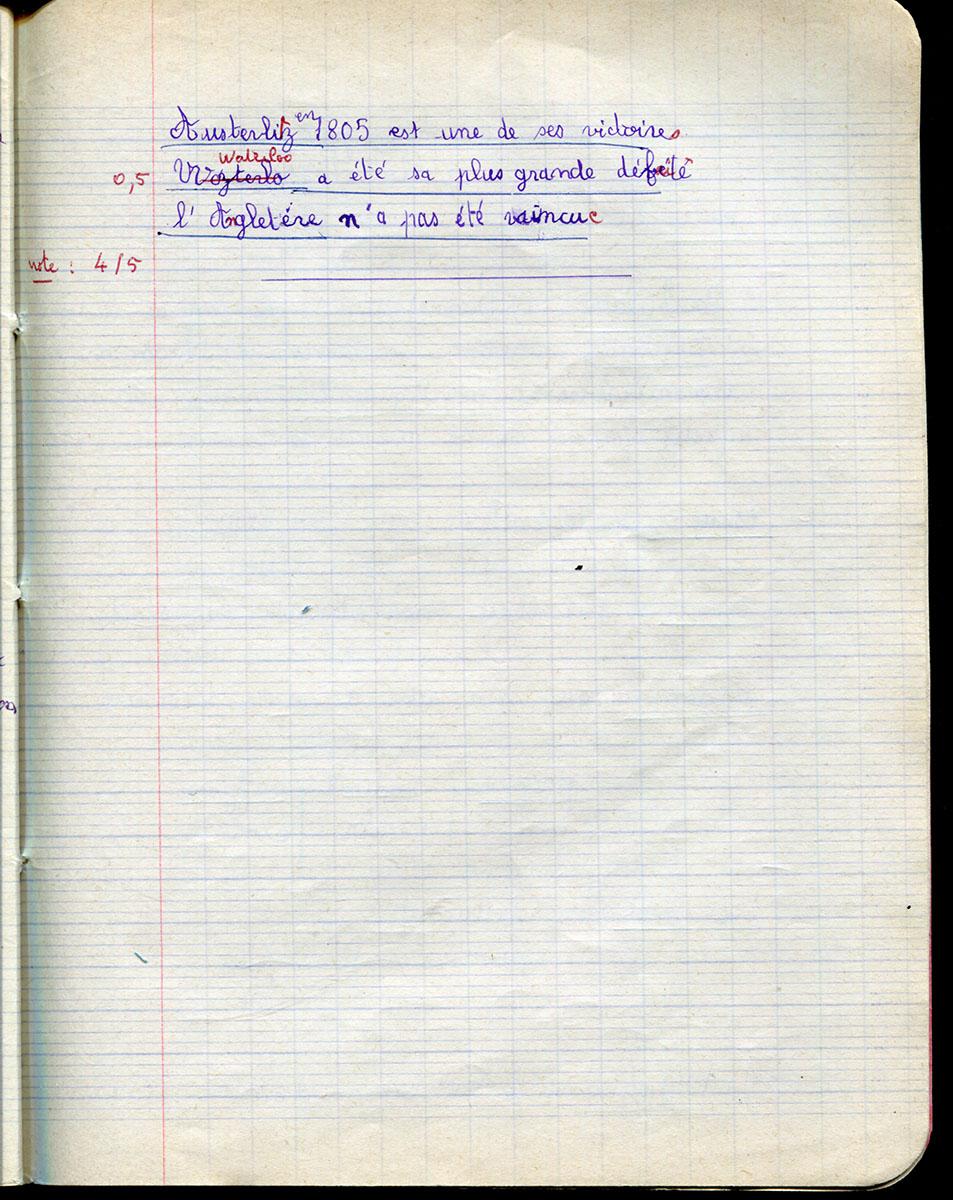 Austerlitz en 1805 est une de ses victoires
Waterloo
0,5 a été sa plus grande défaite
l'Angletére n'a pas été vaincue
note : 4/5